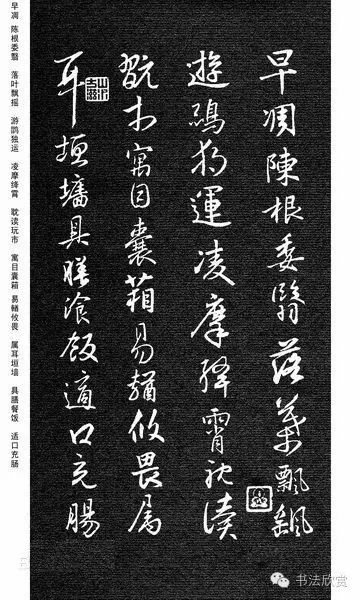 早凋陳根委翳落葉飄颻
遊鵾獨運凌摩絳霄耽讀
翫市寓目囊箱易輶攸畏属
耳垣墻具膳飡飯適口充腸
早凋 陈根委翳 落叶飘摇 游鹍独运 凌摩绛霄 耽读玩市 寓目囊箱 易輶攸畏 属耳垣墙 具膳餐饭 适口充肠
书法欣赏